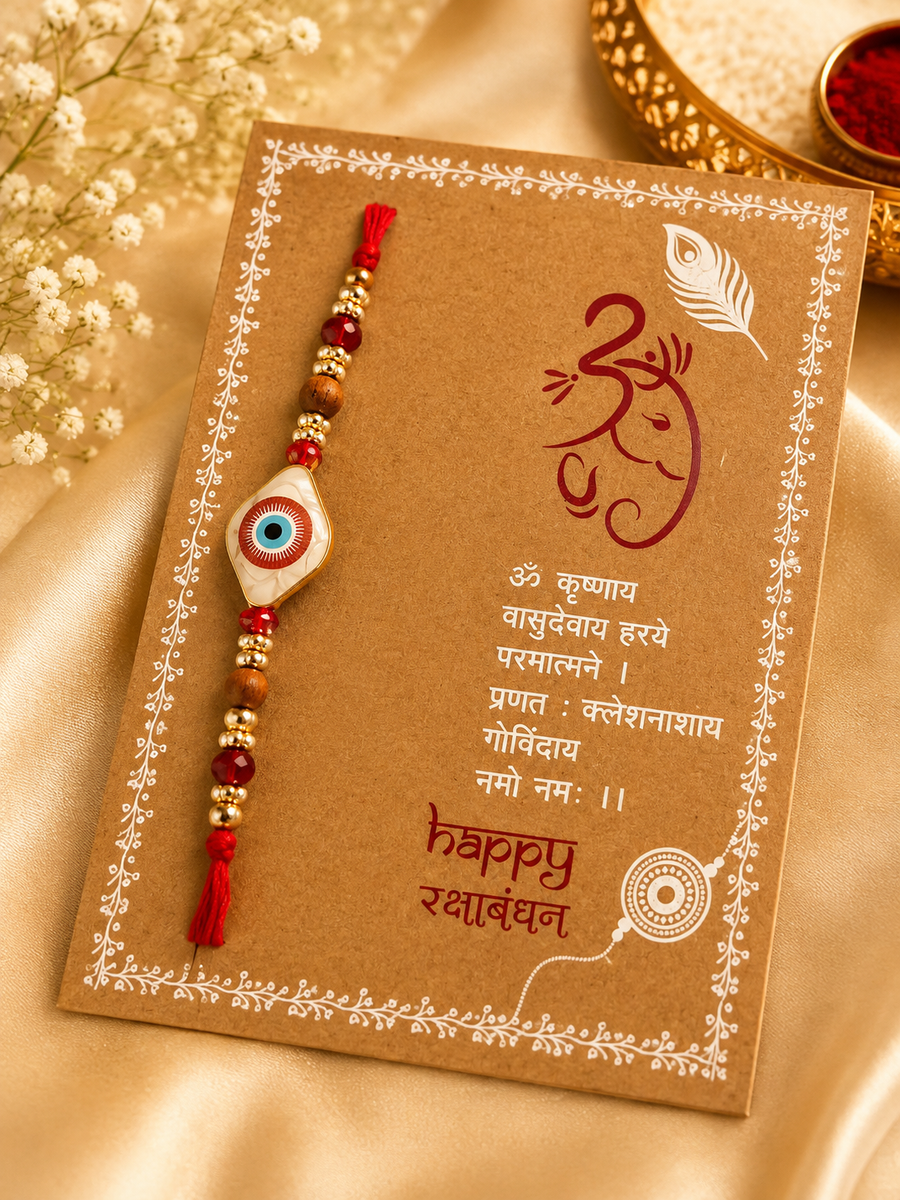 ॐ कृष्णाय
वासुदेवाय हरये
परमात्मने ।
प्रणत : क्लेशनाशाय
गोविंदाय
नमो नमः ।।
happy
रक्षाबंधन